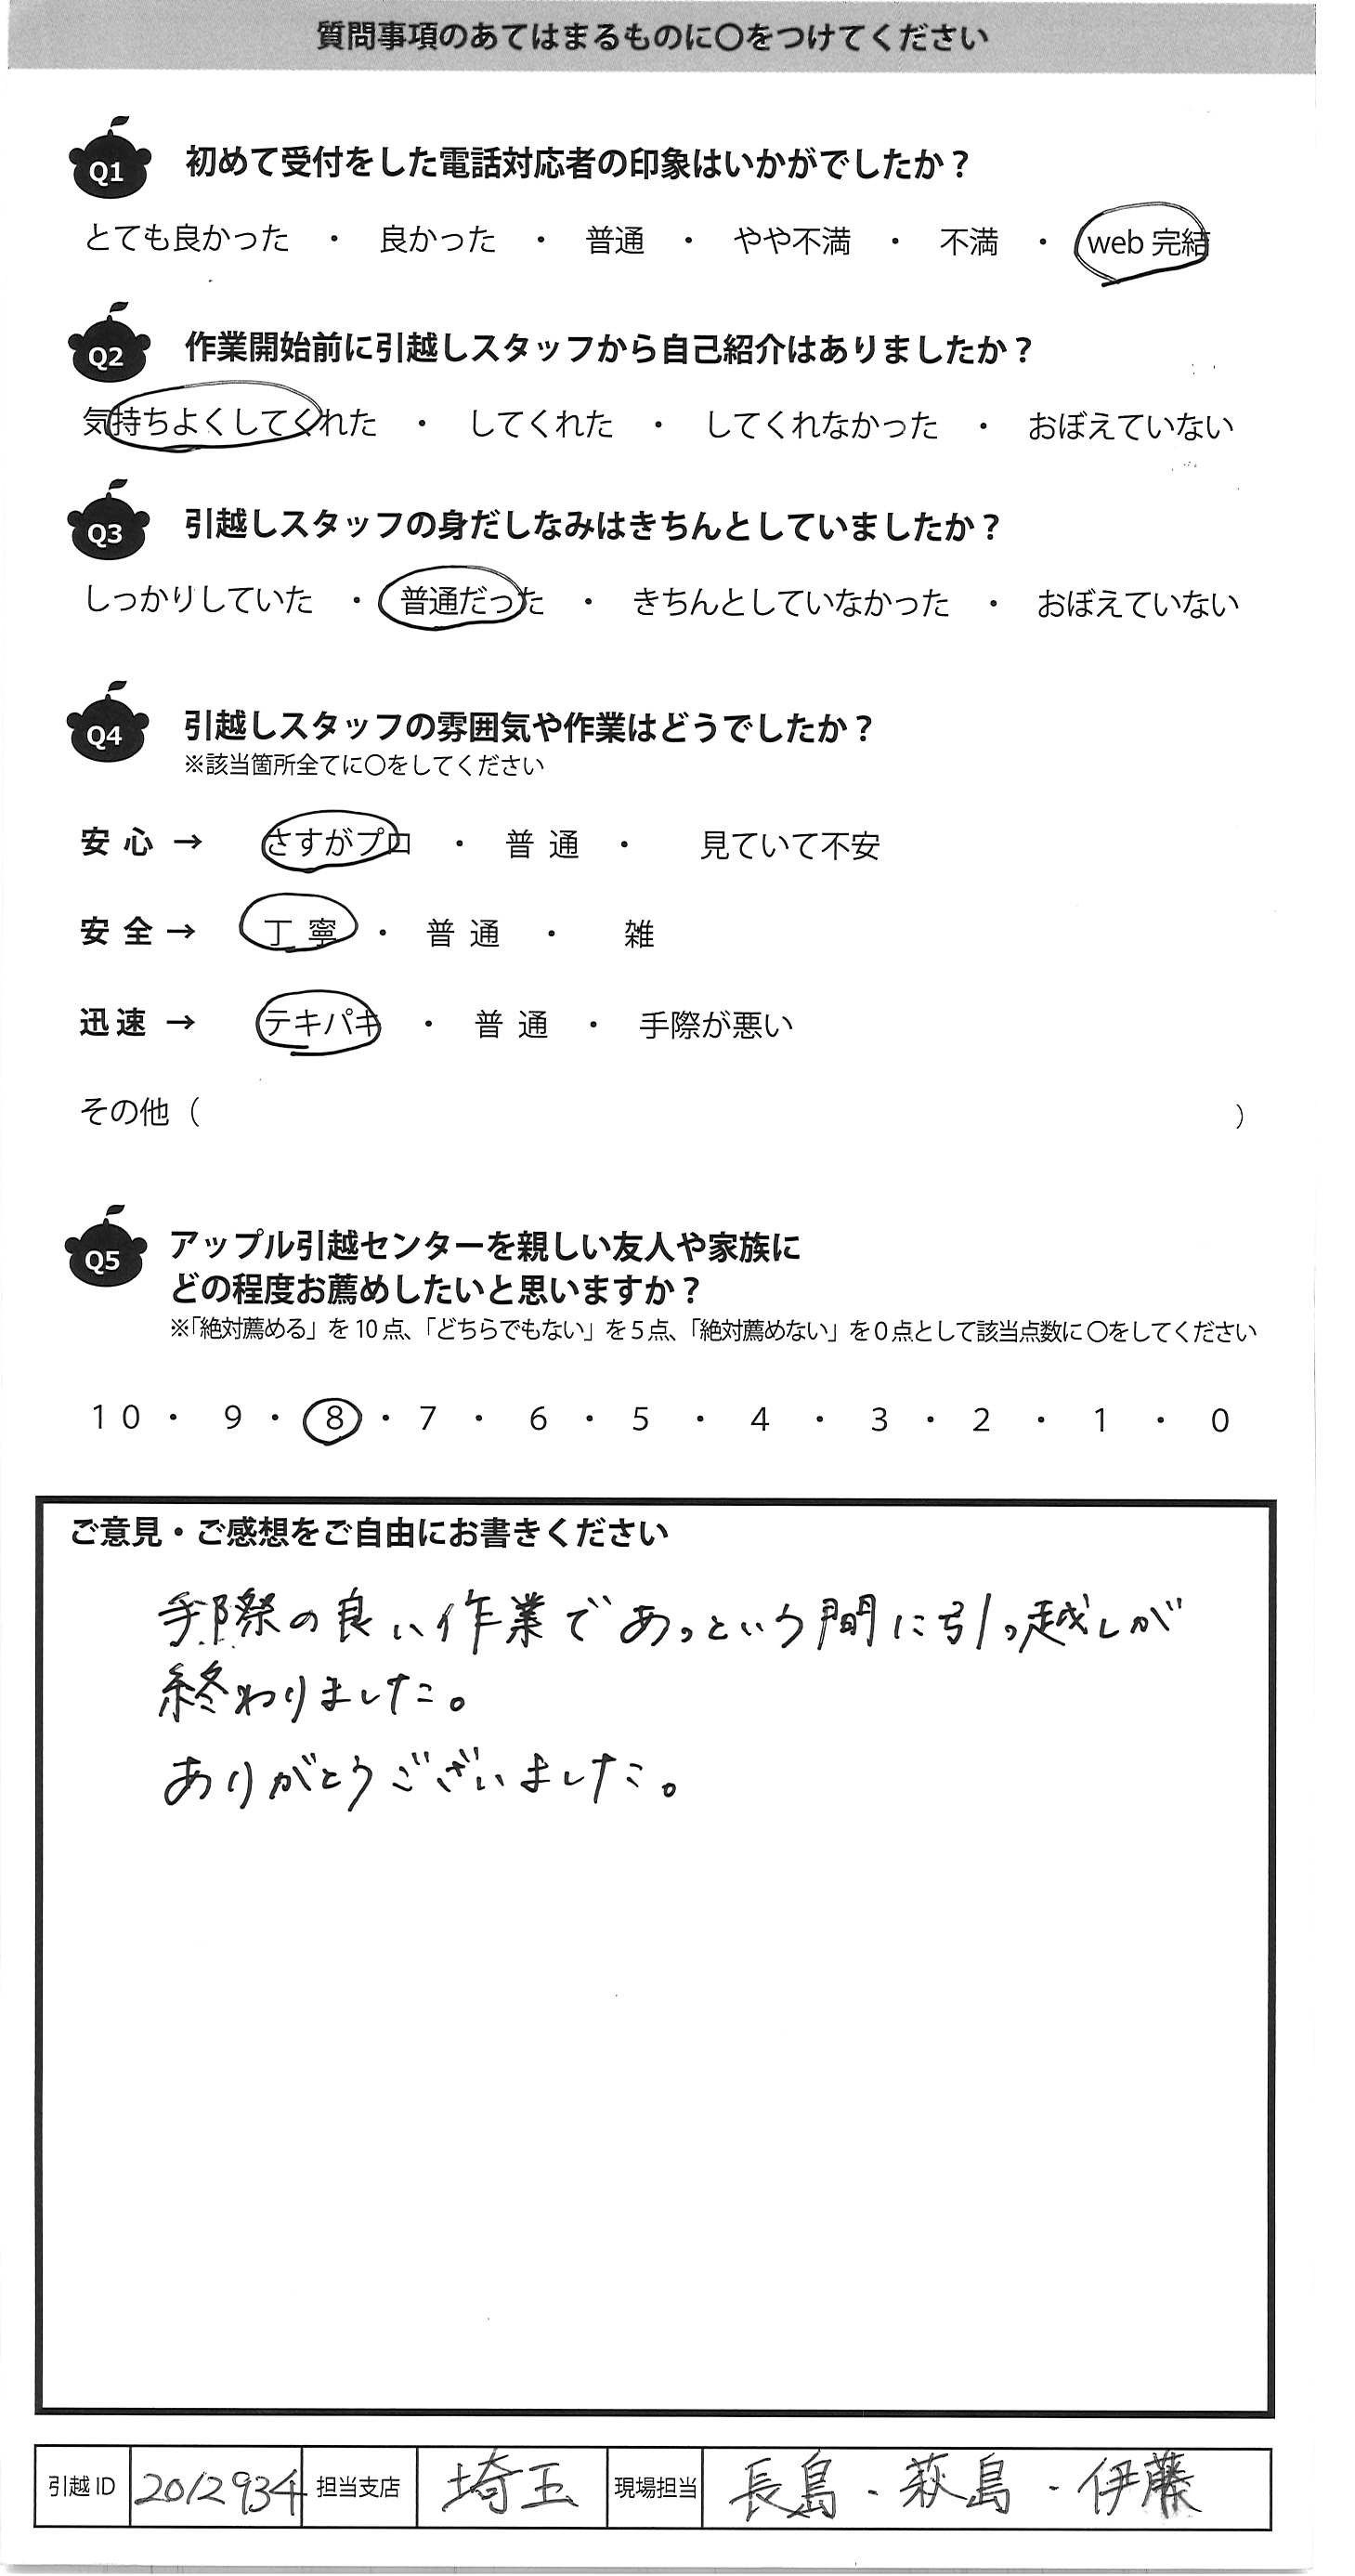 質問事項のあてはまるものに〇をつけてください
Q1 初めて受付をした電話対応者の印象はいかがでしたか？
とても良かった ・ 良かった ・ 普通 ・ やや不満 ・ 不満 ・ web 完結
Q2 作業開始前に引越しスタッフから自己紹介はありましたか？
気持ちよくしてくれた ・ してくれた ・ してくれなかった ・ おぼえていない
Q3 引越しスタッフの身だしなみはきちんとしていましたか？
しっかりしていた ・ 普通だった ・ きちんとしていなかった ・ おぼえていない
Q4 引越しスタッフの雰囲気や作業はどうでしたか？
※該当箇所全てに〇をしてください
安心 → さすがプロ ・ 普通 ・ 見ていて不安
安全 → 丁寧 ・ 普通 ・ 雑
迅速 → テキパキ ・ 普通 ・ 手際が悪い
その他（ ）
Q5 アップル引越センターを親しい友人や家族に
どの程度お薦めしたいと思いますか？
※「絶対薦める」を 10 点、「どちらでもない」を 5 点、「絶対薦めない」を 0 点として該当点数に 〇をしてください
10 ・ 9 ・ 8 ・ 7 ・ 6 ・ 5 ・ 4 ・ 3 ・ 2 ・ 1 ・ 0
ご意見・ご感想をご自由にお書きください
手際の良い作業であっという間に引っ越しが
終わりました。
ありがとうございました。
引越 ID 2012934 担当支店 埼玉 現場担当 長島・萩島・伊藤